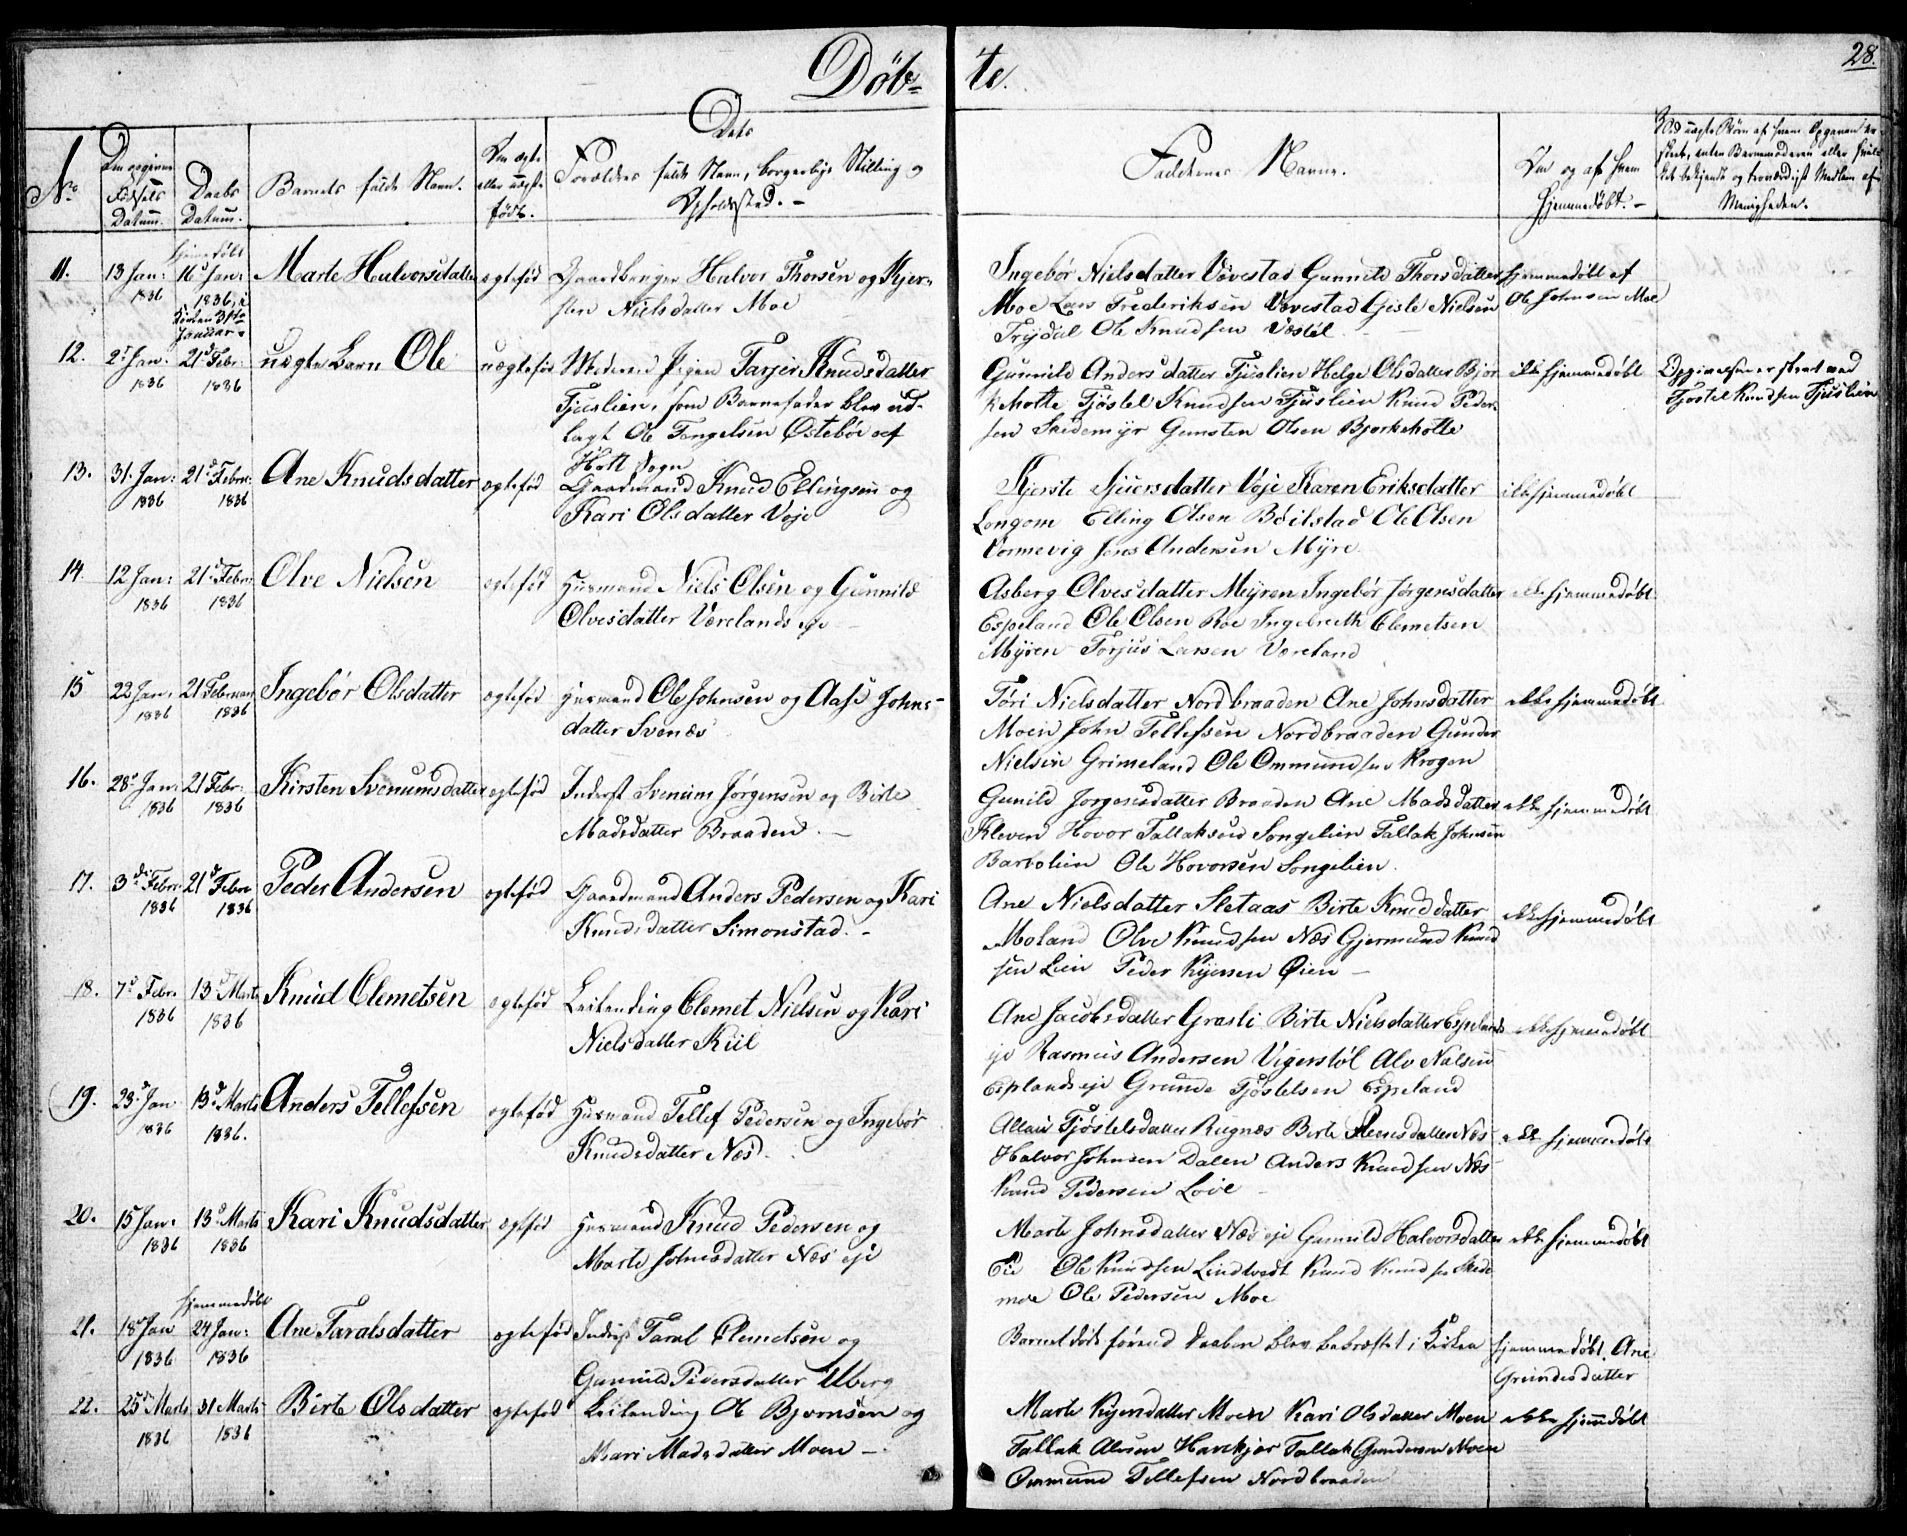 Døb-
te.
28.
Dets
No.
Den opgivne
Fødsels
Datum.
Daabs
Datum.
Barnets fulde Navn.
Om ægte
eller uægte
født.
Forældres fulde Navn, borgerlige Stilling og
Opholdssted.
Faddernes Navne.
Om og af hvem
hjemmedøbt.
Ved uægte Børn af hvem Opgaven er
skeet, enten Barnemoderen eller
bekjendt og troværdigt Medlem af
Menigheden.
11.
13 Jan:
1836
hjemedøbt
16 Jan:
1836, i
Kirken 31te
Januar
Marte Halvorsdatter
ægtefød
Gaardbruger Halvor Thorsen og Kjer-
sten Nielsdatter Moe
Ingebør Nielsdatter Vøvestad Gunnild Thorsdatter
Moe Lars Frederiksen Vøvestad Gisle Nielsen
Trydal Ole Knudsen Væstøl
hjemmedøbt af
Ole Johnsen Moe
12.
2d Jan:
1836
21d Febr:
1836
uægte Barn Ole
uægtefød
Moderen Pigen Tarjer Knudsdatter
Tjuslien, som Barnefader blev ud-
lagt Ole Tengelsen Østebøe af
Holt Sogn
Gunnild Andersdatter Tjuslien Helge Olsdatter Bjor
keholte Tjøstel Knudsen Tjuslien Knud Peder-
sen Skedemyr Gunsten Olsen Bjorkeholte
ikke hjemmedøbt
Opgivelsen er skeet ved
Tjøstel Knudsen Tjuslien
13.
31. Jan:
1836
21d Febru:
1836
Ane Knudsdatter
ægtefød
Gaardmand Knud Ellingsen og
Kari Olsdatter Voje
Kjerste Sjursdatter Voje Karen Eriksdatter
Longom Elling Olsen Böilstad Ole Olsen
Vormevig Jens Andersen Myre
ikke hjemmedøbt
14
12 Jan:
1836
21d Febr:
1836
Olve Nielsen
ægtefød
Husmand Niels Olsen og Gunnild
Olvesdatter Værelands eje
Asberg Olvesdatter Meyren Ingebør Jørgensdatter
Espeland Ole Olsen Roe Ingebreth Clemetsen
Myren Torjus Larsen Væreland
ikke hjemmedøbt
15
22 Jan:
1836
21 Februar
1836
Ingebør Olsdatter
ægtefød
Husmand Ole Johnsen og Aase Johns-
datter Svenæs
Tøri Nielsdatter Nordbraaden Ane Johnsdatter
Moen John Tellefsen Nordbraaden Gunder
Nielsen Grimeland Ole Ommundsen Krogen
ikke hjemmedøbt
16.
28d Jan:
1836
21 Febr:
1836
Kirsten Svenumsdatter
ægtefød
Inderst Svenum Jørgensen og Birte
Madsdatter Braaden.
Gunild Jorgensdatter Braaden Ane Madsdatter
Kleven Hovor Tallaksen Songelien Tallak Johnsen
Barbolien Ole Hovorsen Songelien.
ikke hjemmedøbt
17.
3de Febr:
1836
21d Febr
1836
Peder Andersen
ægtefød
Gaardmand Anders Pedersen og Kari
Knudsdatter Simonstad.
Ane Nielsdatter Sletaas Birte Knudsdatter
Moland Olve Knudsen Næs Gjermund Knud
sen Lien Peder Kjersen Øien
ikke hjemmedøbt
18.
7d Febr.
1836
13d Marts
1836
Knud Clemetsen
ægtefød
Leilending Clemet Nielsen og Kari
Nielsdatter Kiil
Ane Jacobsdatter Grasli Birte Nielsdatter Espelands
eje Rasmus Andersen Vigerstøl Alv Nielsen
Esplands eje Grunde Tjøstelsen Espeland
ikke hjemmedøbt
19.
23d Jan
1836
13d Marts
1836.
Anders Tellefsen
ægtefød
Husmand Tellef Pedersen og Ingebør
Knudsdatter Næs.
Tjøstelsdatter Rugnæs Birte Næs
Halvor Johnsen Dalen Anders Knudsen Næs
Knud Pedersen Løvle
ikke hjemmedøbt
20.
15 Jan:
1836
13d Marts
1836
Kari Knudsdatter
ægtefød
Husmand Knud Pedersen og
Marte Johnsdatter Næs eje
Marte Johnsdatter Næs eje Gunnild Halvorsdatter
Eie Ole Knudsen Lindtvedt Knud Knudsen Skede
moe Ole Pedersen Moe
ikke hjemmedøbt
21.
18d Jan
1836
hjemmedøbt
24 Jan:
1836
Ane Taralsdatter
ægtefød
Inderst Taral Clemetsen og
Gunnild Pedersdatter Uberg
Barnet døde førend Daaben blev bekræftet i Kirken
hjemmedøbt. Ane
Grundesdatter
22.
25de Marts
1836
31 Marts
1836
Birte Olsdatter
ægtefød
Leilending Ole Bjornsen og
Mari Madsdatter Moen
Marte Kjensdatter Moen Kari Olsdatter Moen
Tallak Alvsen Havekjør Tallak Gundersen Moen
Ommund Tellefsen Nordbraaden
ikke hjemdøbt